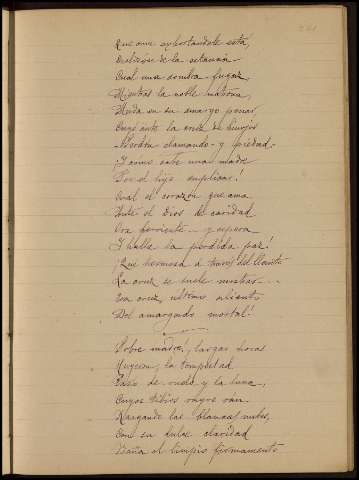 Que ame
de la
Cual una sombra fugaz
Mientras la noble matrona,
Muda en su amargo penar,
Cayó ante la cruz de hinojos
Perdon clamando y piedad
¡Y cómo sabe una madre
Por el hijo suplicar!
Cual el corazón que ama
Ante el Dios de caridad
Ora ferviente y espera
Y halla la perdida paz!
¡Qué hermosa á traves del llanto
La cruz se suele mostrar...
Esa cruz, último aliento
Del amargado mortal!
Pobre madre! largas horas
Huyeron; la tempestad
Pasó de vuelo y la luna,
Cuyos tibios rayos van
Rasgando las blancas nubes,
Con su dulce claridad
Baña el limpio firmamento